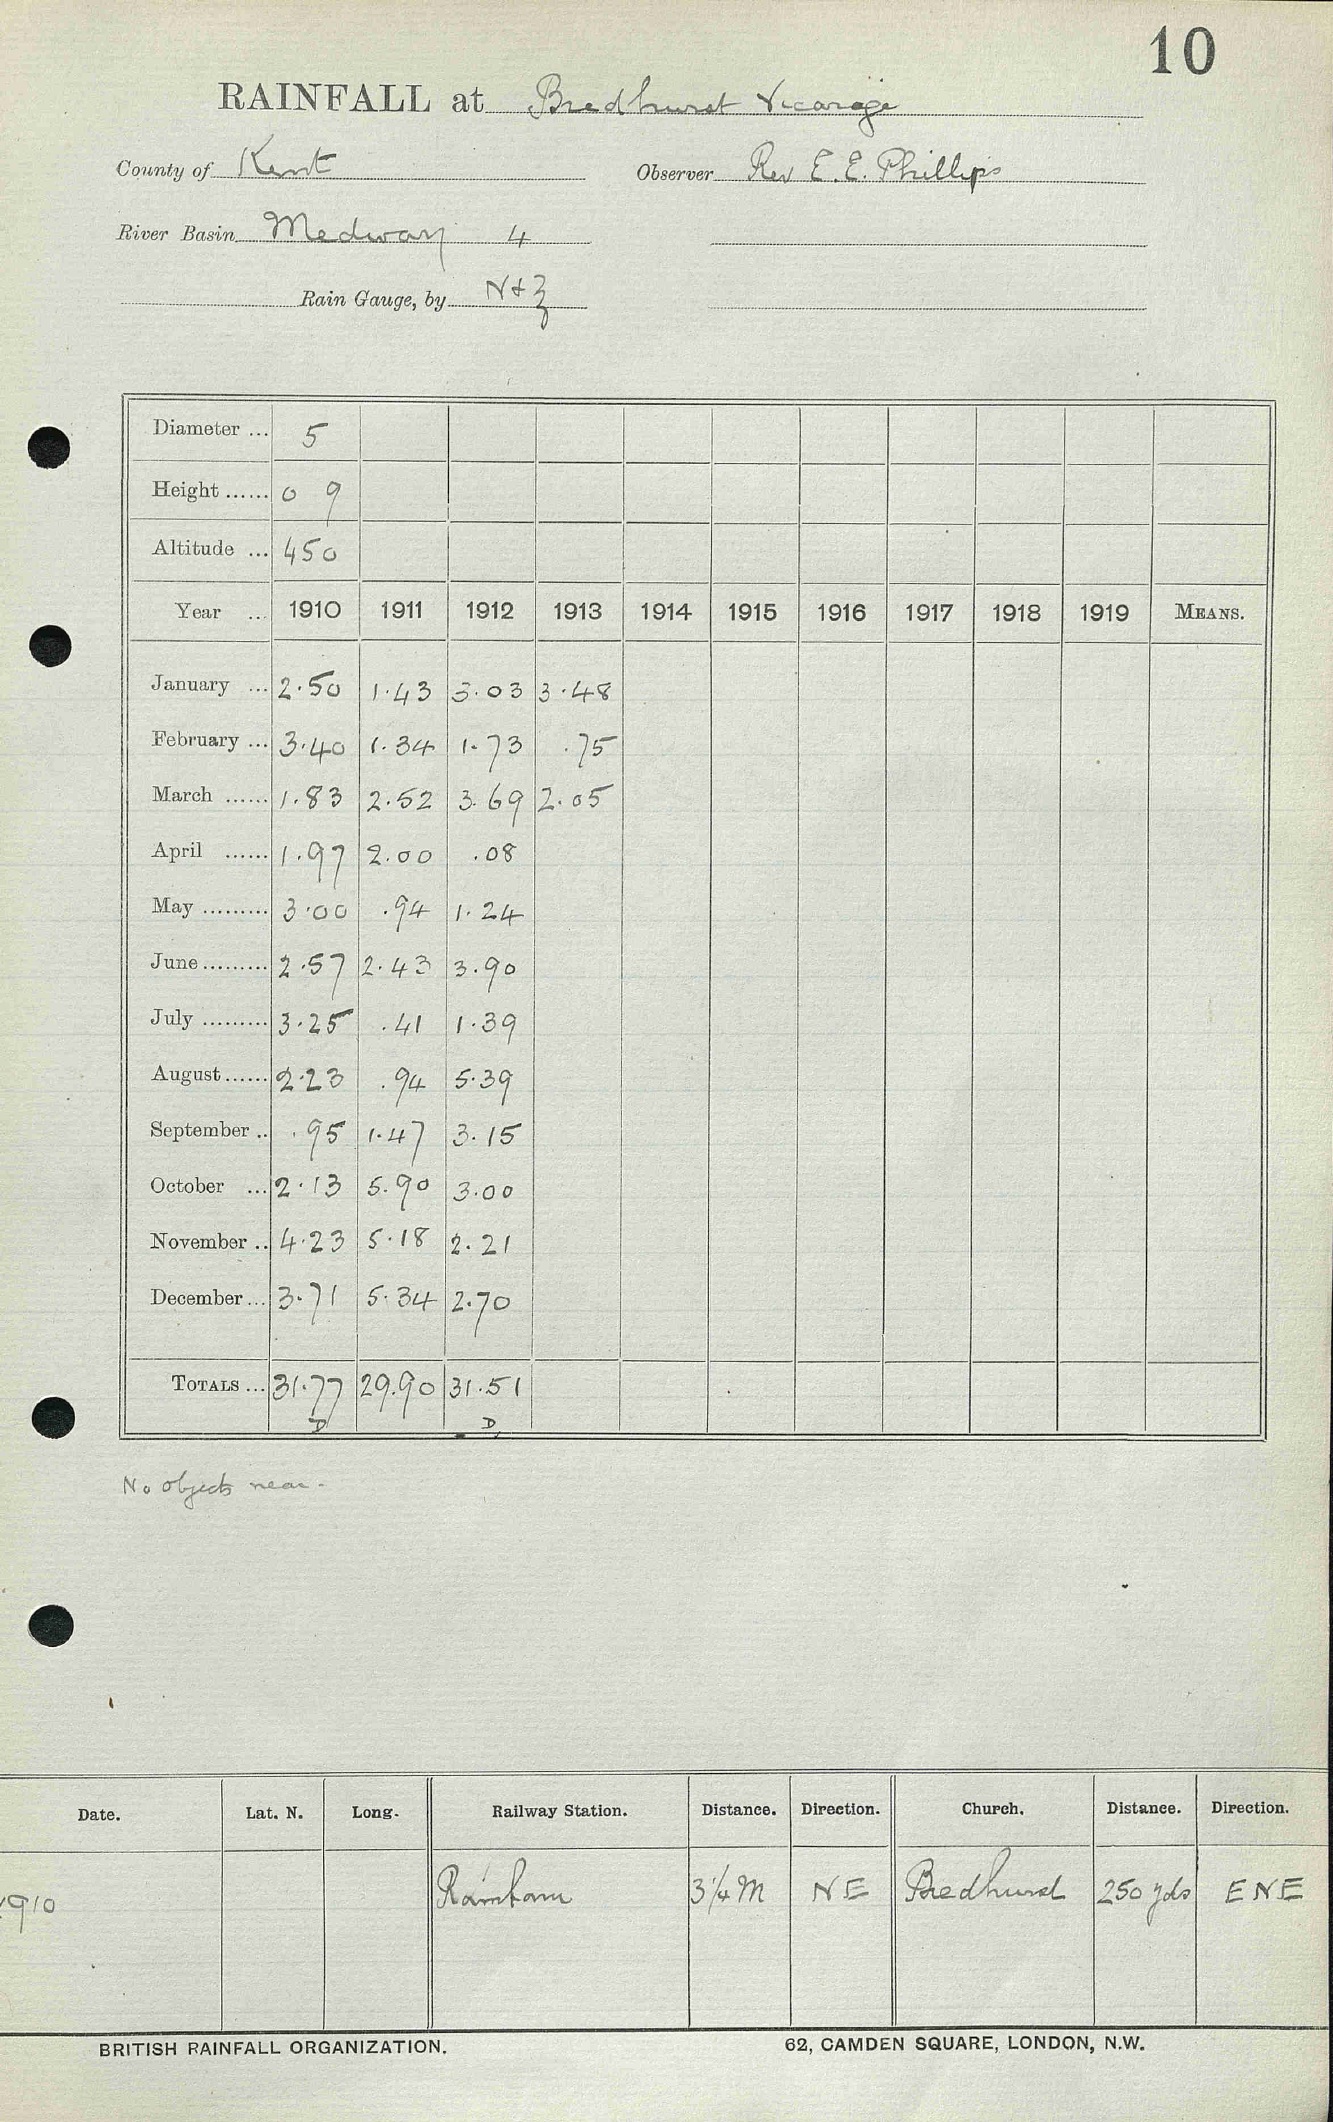 10
RAINFALL at Bredhurst Vicarage
County of Kent Observer Rev E. E. Phillips
River Basin Medway 4
Rain Gauge, by N+Z
Diameter ... 5
Height ...... 0 9
Altitude ... 450
Year ... 1910 1911 1912 1913 1914 1915 1916 1917 1918 1919 MEANS.
January ... 2.50 1.43 3.03 3.48
February ... 3.40 1.34 1.73 .75
March ...... 1.83 2.52 3.69 2.05
April ...... 1.97 2.00 .08
May ......... 3.00 .94 1.24
June ......... 2.57 2.43 3.90
July ......... 3.25 .41 1.39
August ...... 2.23 .94 5.39
September .. .95 1.47 3.15
October ... 2.13 5.90 3.00
November .. 4.23 5.18 2.21
December ... 3.71 5.34 2.70
TOTALS ... 31.77 29.90 31.51
D D
No objects near.
Date. Lat. N. Long. Railway Station. Distance. Direction. Church. Distance. Direction.
1910 Rainham 3 1/4 M NE Bredhurst 250 yds ENE
BRITISH RAINFALL ORGANIZATION. 62, CAMDEN SQUARE, LONDON, N.W.